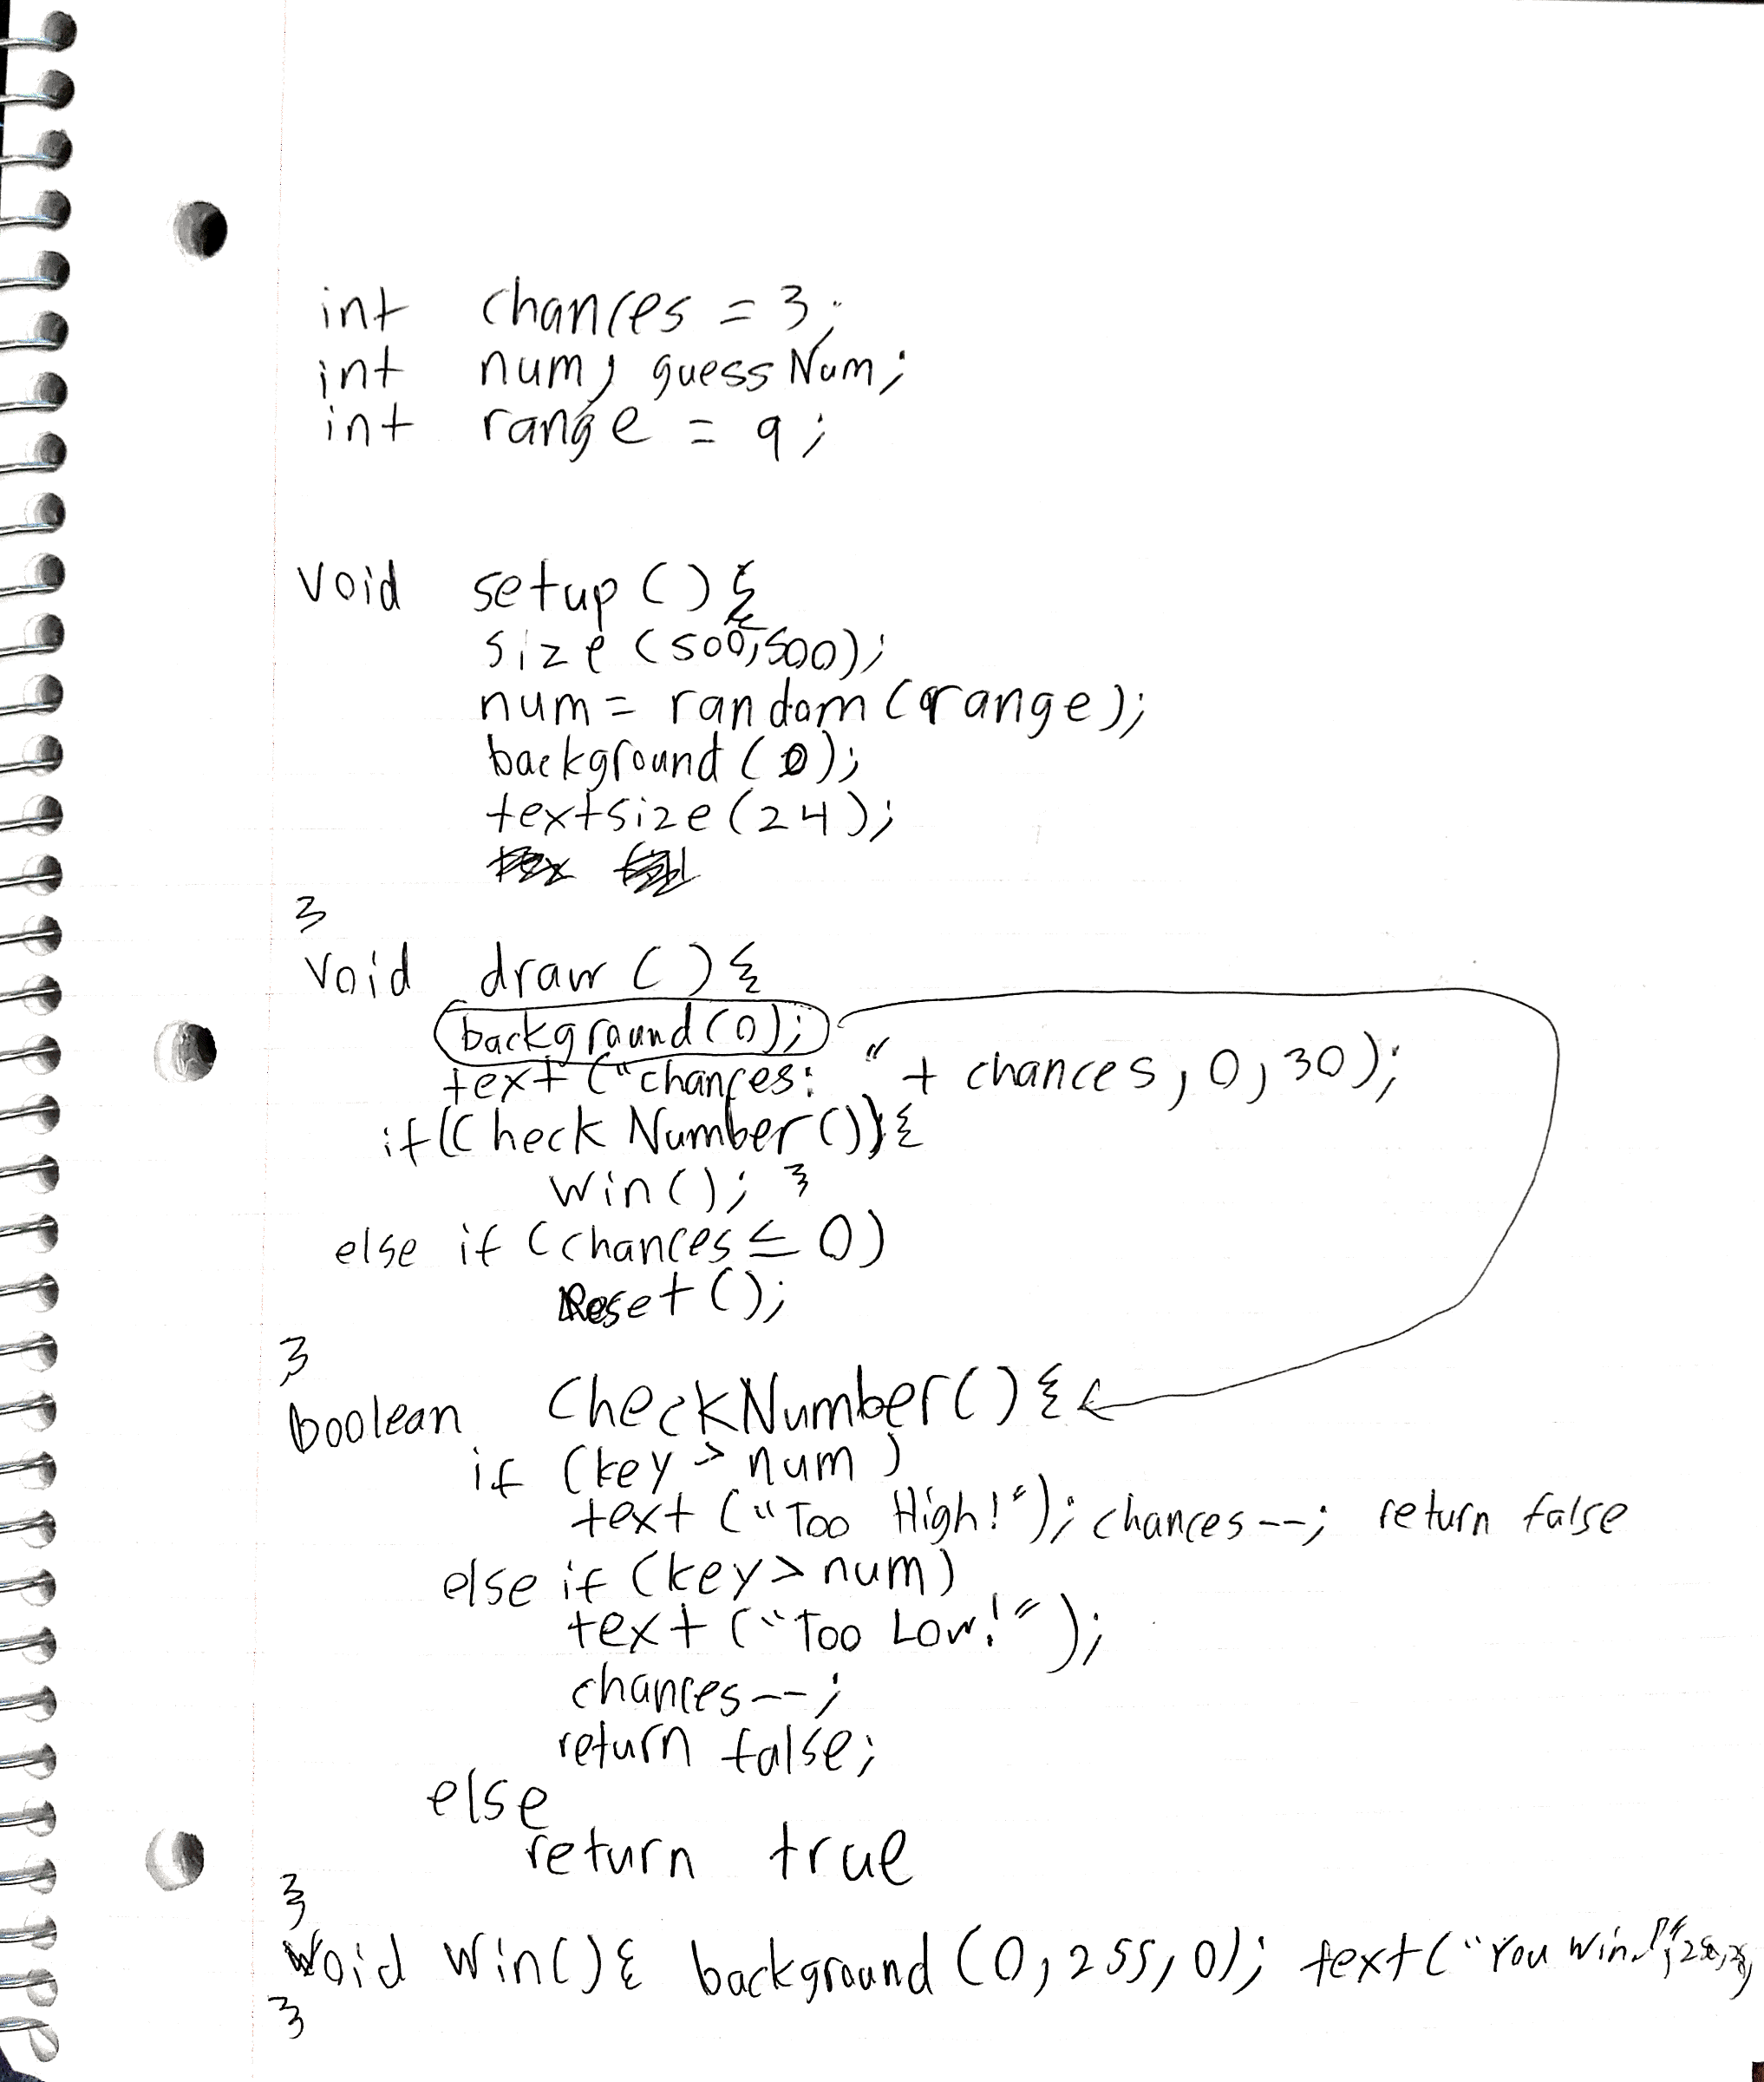 int chances = 3;
int num, guessNum;
int range = 9;
void setup(){
size(500,500);
num = random(range);
background(0);
textsize(24);
}
void draw(){
background(0);
text("chances: " + chances, 0, 30);
if(CheckNumber()){
Win(); }
else if (chances ≤ 0)
Reset();
}
boolean CheckNumber(){
if (key > num)
text("Too High!"); chances--; return false
else if (key > num)
text("Too Low!");
chances--;
return false;
else
return true
}
void Win(){ background(0,255,0); text("You Win!",
}